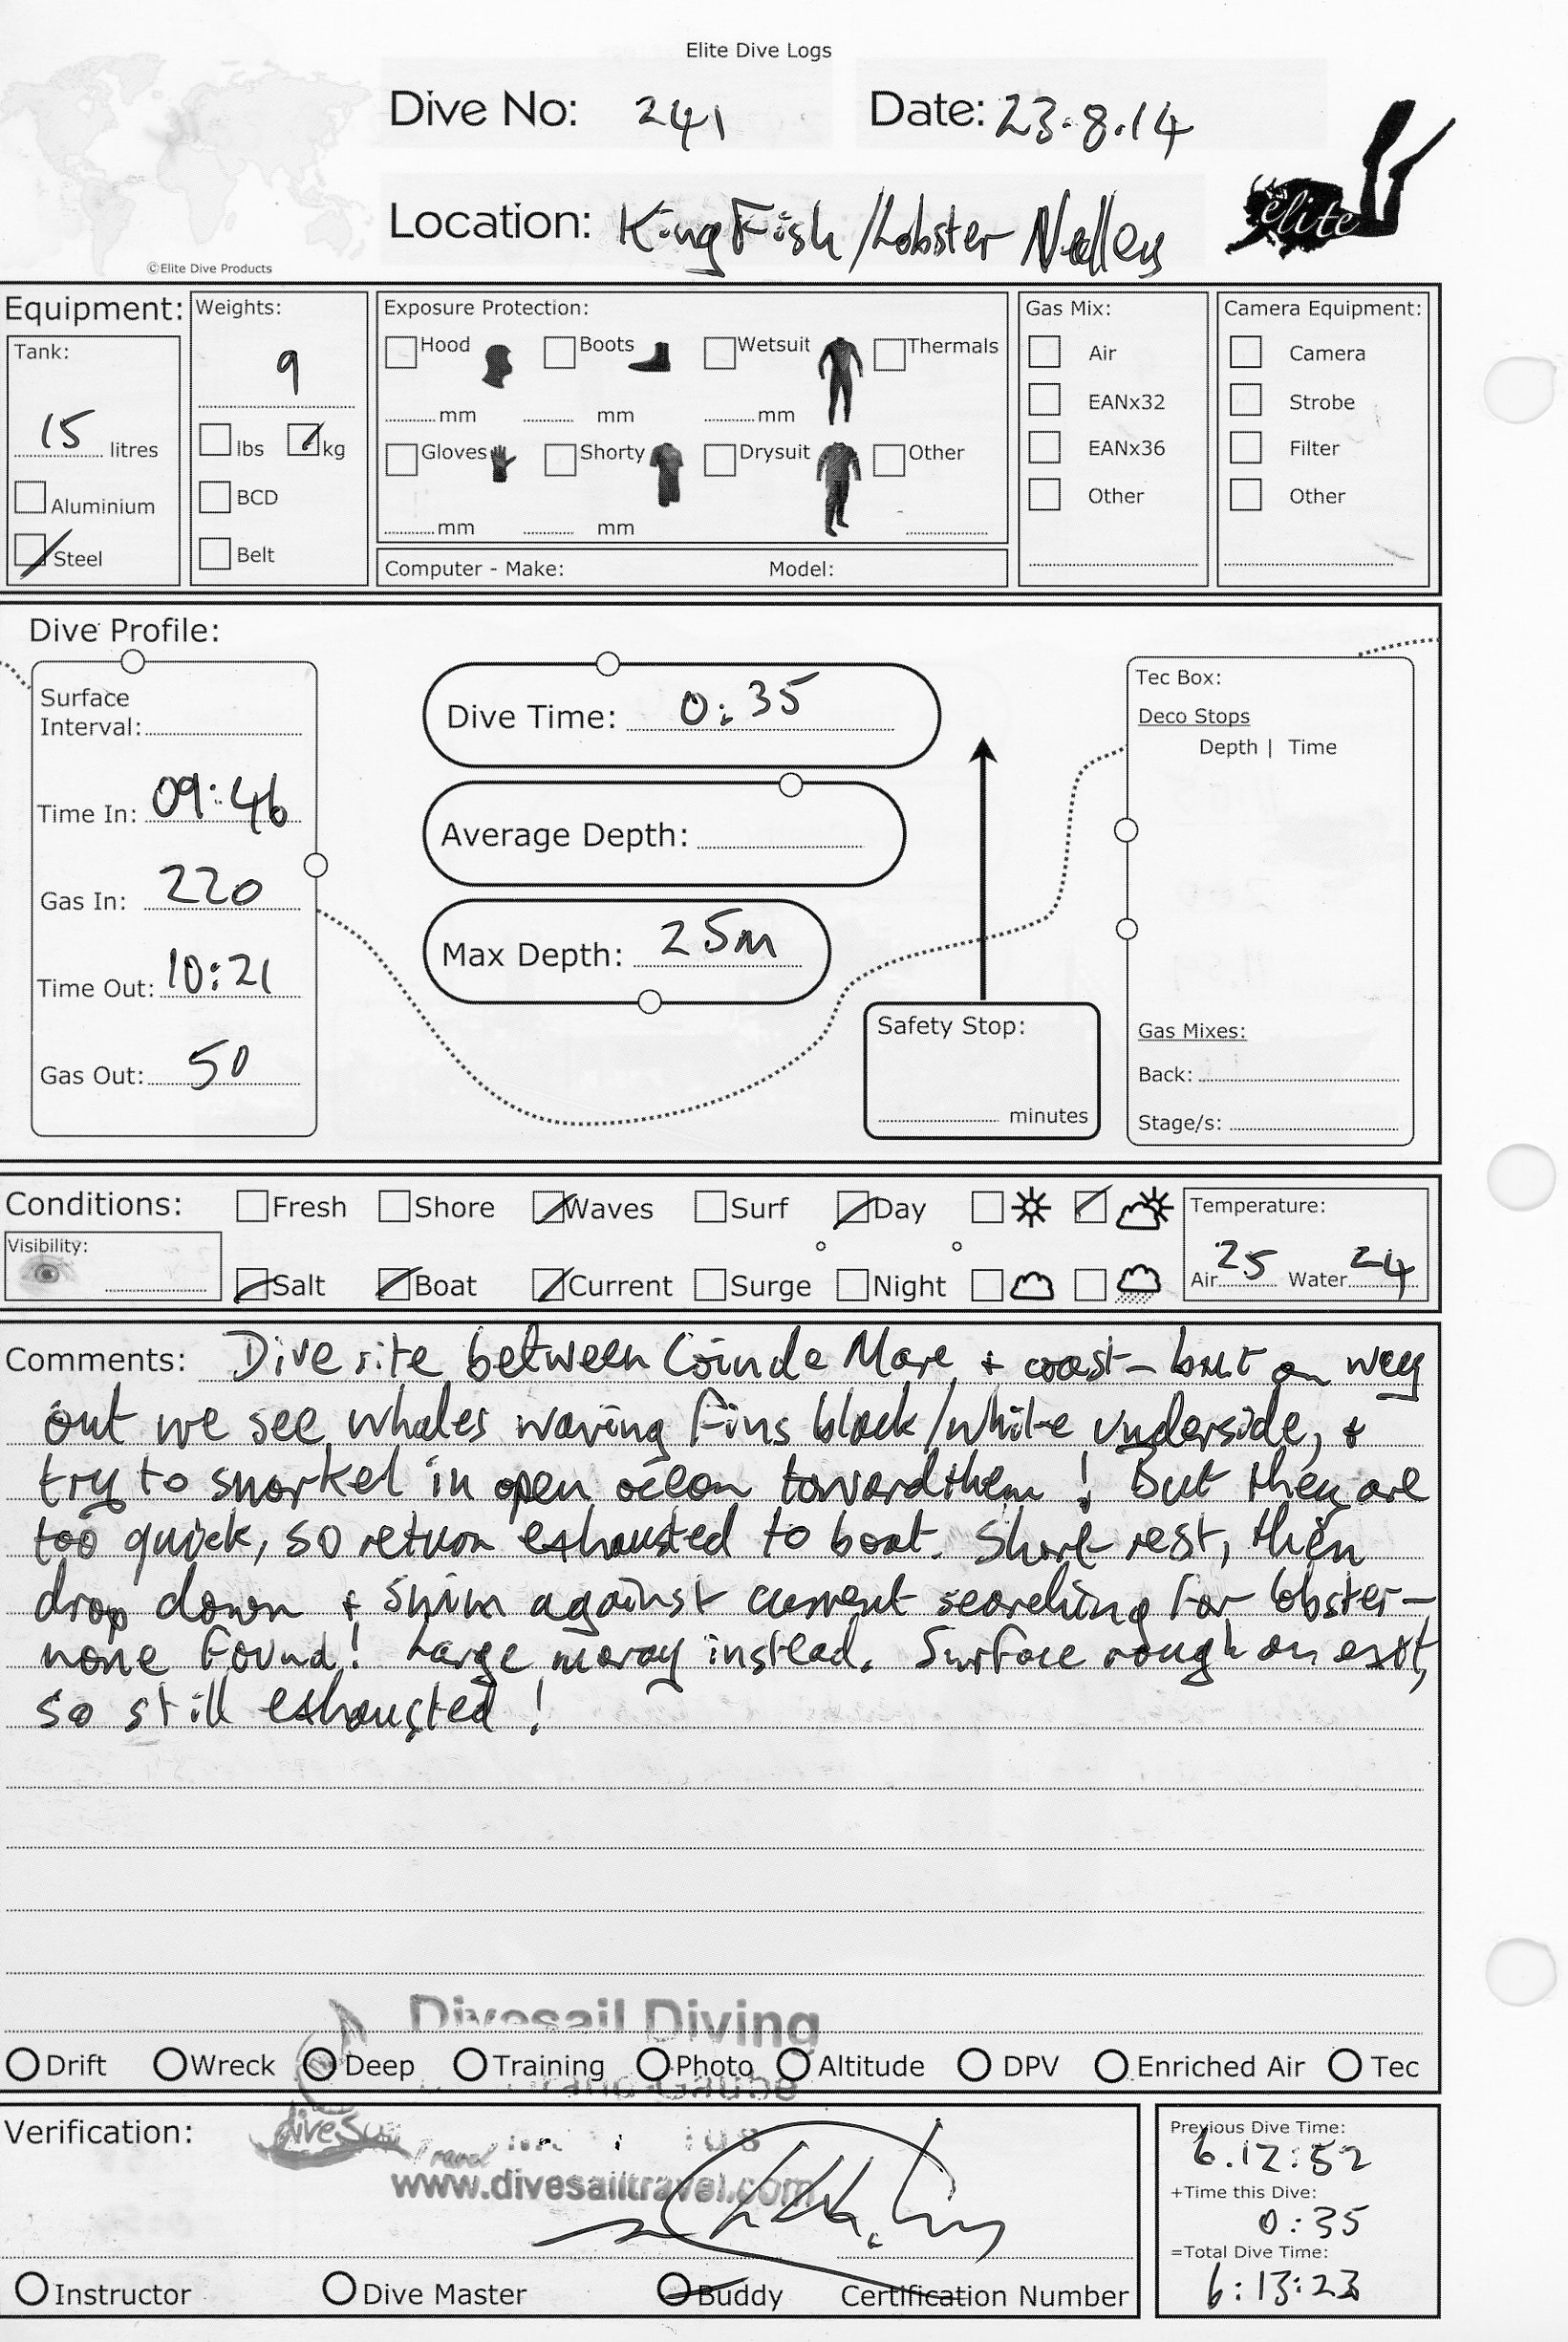 Elite Dive Logs
Dive No: 241 Date: 23.8.14
Location: KingFish/Lobster
elite
©Elite Dive Products
Equipment: Weights: Exposure Protection: Gas Mix: Camera Equipment:
Tank: 9 Hood Boots Wetsuit Thermals Air Camera
mm mm mm EANx32 Strobe
15 litres lbs kg Gloves Shorty Drysuit Other EANx36 Filter
Aluminium BCD Other Other
mm mm
Steel Belt Computer - Make: Model:
Dive Profile:
Surface
Interval:
Time In: 09:46
Gas In: 220
Time Out: 10:21
Gas Out: 50
Dive Time: 0:35
Average Depth:
Max Depth: 25m
Safety Stop:
minutes
Tec Box:
Deco Stops
Depth | Time
Gas Mixes:
Back:
Stage/s:
Conditions: Fresh Shore Waves Surf Day Temperature:
Visibility: Salt Boat Current Surge Night Air 25 Water 24
Comments: Dive site between Coin de Mare + coast - but on way
out we see whales waving fins black/white underside, +
try to snorkel in open ocean toward them! But they are
too quick, so return exhausted to boat. Short rest, then
drop down + swim against current searching for lobster -
none found! Large moray instead. Surface rough on exit,
so still exhausted!
Divesail Diving
Drift Wreck Deep Training Photo Altitude DPV Enriched Air Tec
Verification:
www.divesailtravel.com
Instructor Dive Master Buddy Certification Number
Previous Dive Time:
6.12:52
+Time this Dive:
0:35
=Total Dive Time:
6:13:23